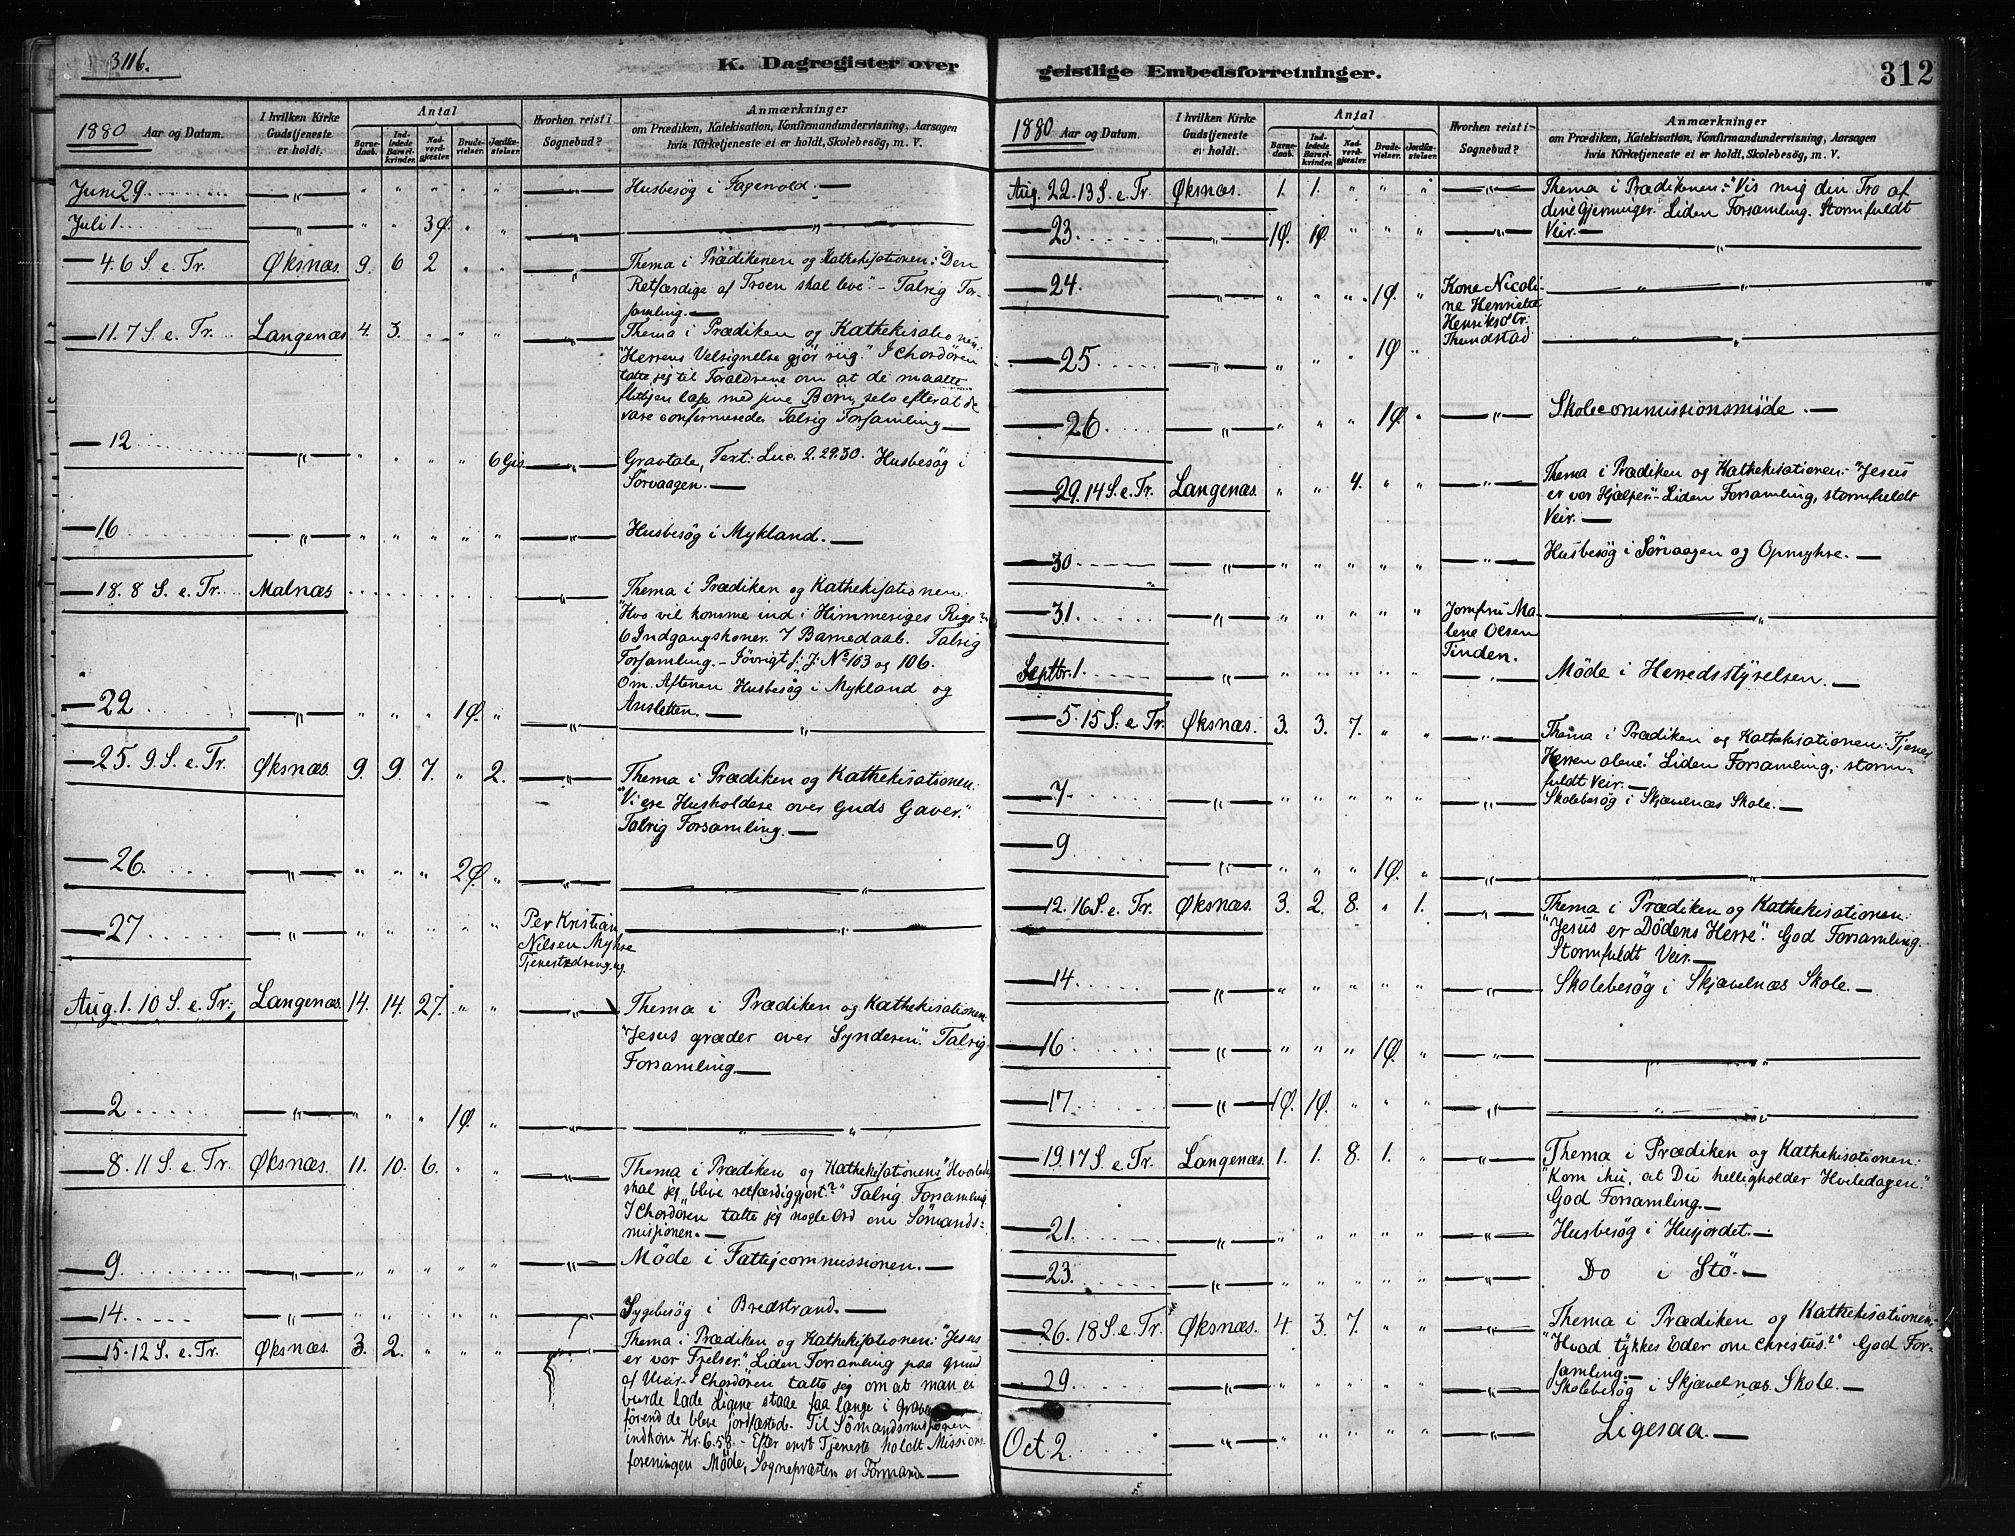 3116.
K. Dagregister over
1880 Aar og Datum.
I hvilken Kirke Gudstjeneste er holdt.
Antal
Barnedaab.
Indledede Barselkvinder.
Nadverdgjester.
Brudevielser.
Jordfæstelser.
Hvorhen reist i Sognebud?
Anmærkninger
om Prædiken, Katekisation, Konfirmandundervisning, Aarsagen
hvis Kirketjeneste ei er holdt, Skolebesøg, m. V.
Juni 29 " " " " " " " Husbesøg i Fagervold.
Juli 1 " " " 3Ø. " " " "
4. 6 S. e. Tr. Øksnæs. 9. 6 2 " " " Thema i Prædikenen og Kathekisationen: "Den
Retfærdige af Troen skal leve". Talrig For-
samling.
11. 7 S. e. Tr. Langenæs 4. 3. " " " " Thema i Prædiken og Kathekisationen:
"Herrens Velsignelse gjør riig." I Chordøren
talte jeg til Forældrene om at de maatte
flittigen læse med sine Børn, selv efterat de
vare confirmerede. Talrig Forsamling
12 " " " " " 6 Gis " Gravtale, Text: Luc. 2. 29.30. Husbesøg i
Sørvaagen.
16 " " " " " " " Husbesøg i Mykland.
18. 8 S. e. Tr. Malnæs " Thema i Prædiken og Kathekisationen:
"Hvo vil komme ind i Himmeriges Rige?"
6 Indgangskoner. 7 Barnedaab. Talrig
Forsamling. - Iøvrigt s: J: No 103 og 106.
Om Aftenen Husbesøg i Mykland og
Ansletten.
22 " " " " 1Ø. " "
25. 9 S. e. Tr Øksnæs. 9. 9. 7. " 2. " Thema i Prædiken og Kathekisationen:
"Vi ere Husholdere over Guds Gaver."
Talrig Forsamling.
26. " " " " 2Ø. " " "
27 " " " " " " Per Kristian "
Nilsen Myhre
Tjenestedreng, ug.
Aug. 1. 10 S. e. Tr: Langenæs. 14. 14. 27. " " " Thema i Prædiken og Kathekisationen
"Jesus græder over Synderen". Talrig
Forsamling.
2 " " " " 1Ø. " " "
8. 11 S. e. Tr. Øksnæs. 11. 10. 6. " " " Thema i Prædiken og Kathekisationens "Hvorledes
skal jeg blive retfærdiggjort?" Talrig Forsamling.
I Chordøren talte jeg nogle Ord om Sømands-
missionen.
9. " " " " " " " Møde i Fattigcommissionen.
14. " " " " " " " Sygebesøg i Bredstrand.
15. 12 S. e. Tr. Øksnæs. 3. 2. " " " Thema i Prædiken og Kathekisationen: "Jesus
er vor Frelser." Liden Forsamling paa Grund
af Uveir. I Chordøren talte jeg om at man ei
burde lade Ligene staae saa længe i Graven
førend de bleve jordfæstede. Til Sømandsmissionen
indkom Kr. 6.58. - Efter endt Tjeneste holdt Missions-
foreningen Møde, Sognepræsten er Formand
geistlige Embedsforretninger.
312
1880 Aar og Datum.
I hvilken Kirke Gudstjeneste er holdt.
Antal
Barnedaab.
Indledede Barselkvinder.
Nadverdgjester.
Brudevielser.
Jordfæstelser.
Hvorhen reist i Sognebud?
Anmærkninger
om Prædiken, Katekisation, Konfirmandundervisning, Aarsagen
hvis Kirketjeneste ei er holdt, Skolebesøg, m. V.
Aug. 22. 13 S. e. Tr. Øksnæs. 1. 1. " " " " Thema i Prædikenen: "Vis mig din Tro af
dine Gjerninger. Liden Forsamling. Stormfuldt
Veir.
23. " 1Ø. 1Ø. " " " " "
24. " " " " 1Ø. " Kone Nicoli- "
ne Henriette
Henriksdtr:
Thendstad
25 " " " " 1Ø " "
26 " " " " 1Ø. " " Skolecommissionsmøde.
29. 14 S. e. Tr. Langenæs. " " 4. " " " Thema i Prædiken og Kathekisationen: "Jesus
er vor Hjælper". Liden Forsamling, stormfuldt
Veir.
30. " " " " " " " Husbesøg i Sørvaagen og Opmyhre.
31. " " " " " " Jomfru Ma- "
lene Olsen
Tinden.
Septbr. 1. " " " " " " " Møde i Herredsstyrelsen.
5. 15 S. e. Tr. Øksnæs. 3. 3. 7. " " " Thema i Prædiken og Kathekisationen: Tjenes
Herren alene". Liden Forsamling, storm-
fuldt Veir.
7. " " " " " " " Skolebesøg i Skjævelnæs Skole.
9 " " " " 1Ø. " " "
12. 16 S. e. Tr. Øksnæs. 3. 2. 8. " 1. " Thema i Prædiken og Kathekisationen:
"Jesus er Dødens Herre". God Forsamling.
Stormfuldt Veir.
14. " " " " " " " Skolebesøg i Skjævelnæs Skole.
16 " " " " 1Ø. " " "
17. " 1Ø. 1Ø. " " " " "
19. 17 S. e. Tr. Langenæs. 1. 1. 8. 1. " " Thema i Prædiken og Kathekisationen:
"Kom ihu, at Du helligholder Hviledagen."
God Forsamling.
21. " " " " " " " Husbesøg i Husjordet.
23. " " " " " " " Do i Stø.
26. 18 S. e. Tr. Øksnæs. 4. 3. 7. " " " Thema i Prædiken og Kathekisationen:
"Hvad tykkes Eder om Christus?" God For-
samling.
29. " " " " " " " Skolebesøg i Skjævelnæs Skole.
Oct. 2. " " " " " " " Ligesaa.